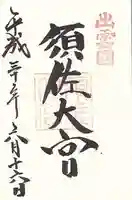 出雲國
須佐大宮
平成三十年八月十六日